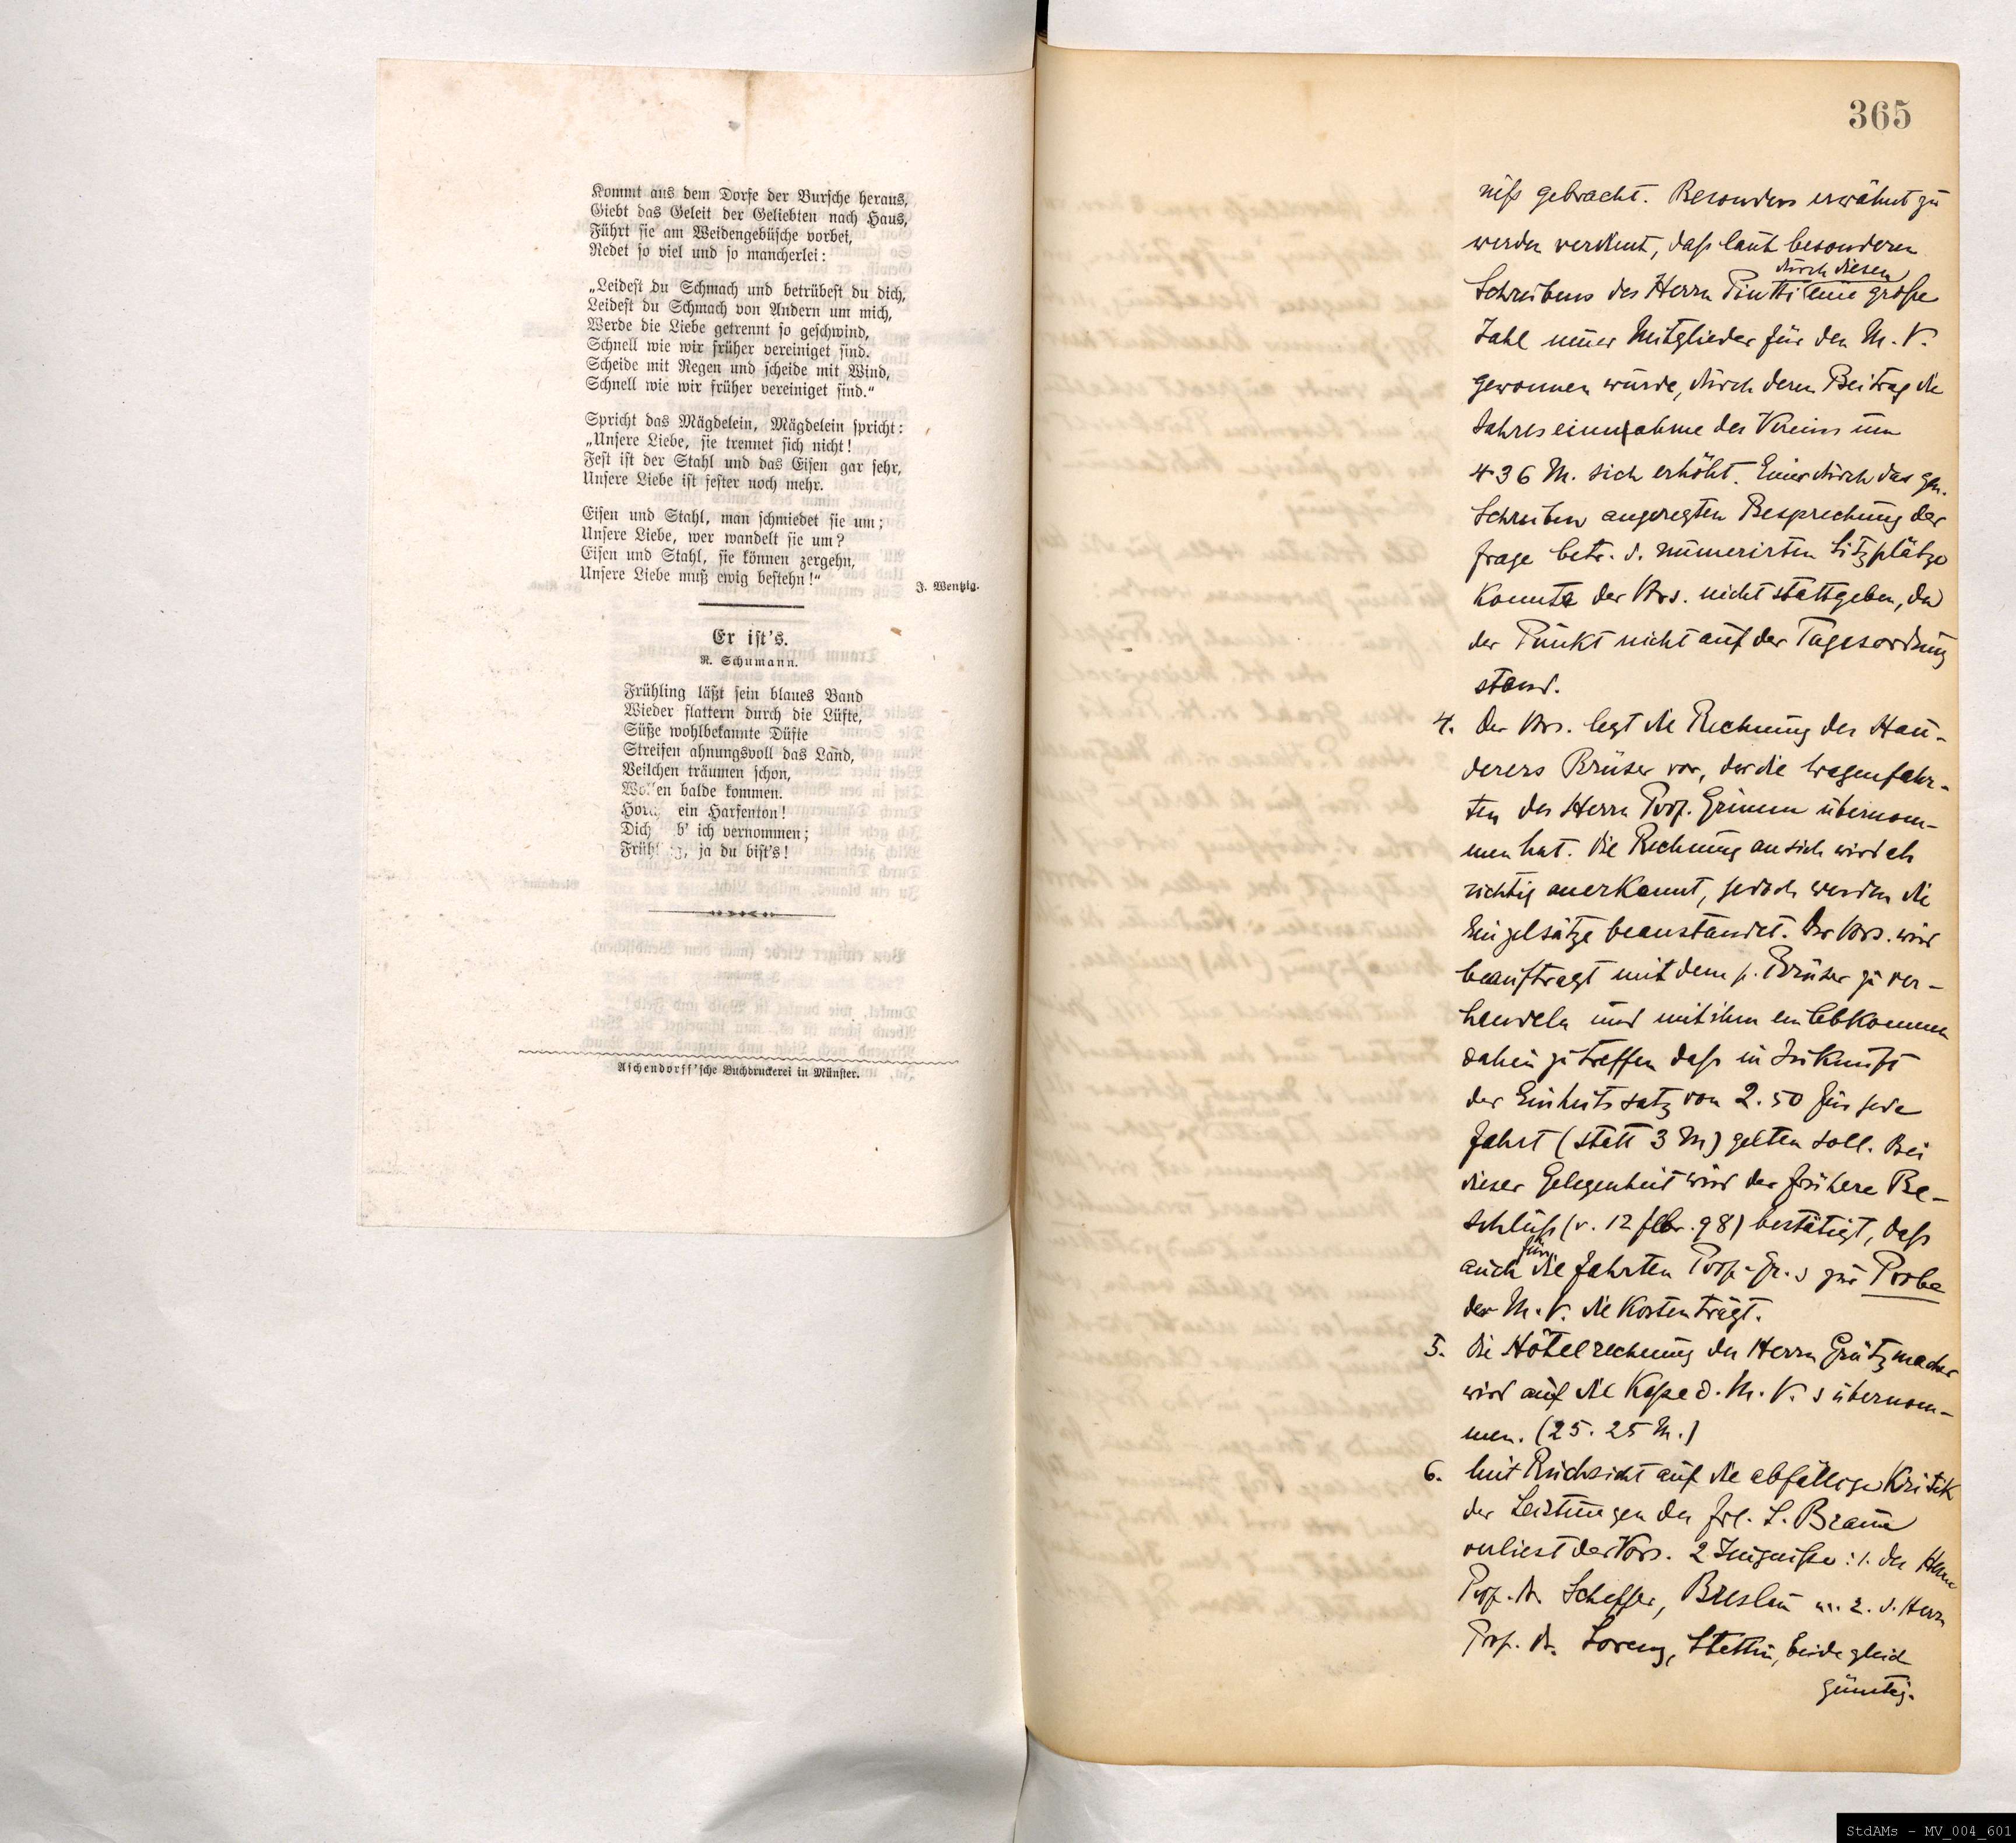 Kommt aus dem Dorfe der Bursche heraus,
Giebt das Geleit der Geliebten nach Haus,
Führt sie am Weidengebüsche vorbei,
Redet so viel und so mancherlei:
„Leidest du Schmach und betrübest du dich,
Leidest du Schmach von Andern um mich,
Werde die Liebe getrennt so geschwind,
Schnell wie wir früher vereiniget sind.
Scheide mit Regen und scheide mit Wind,
Schnell wie wir früher vereiniget sind.“
Spricht das Mägdelein, Mägdelein spricht:
„Unsere Liebe, sie trennet sich nicht!
Fest ist der Stahl und das Eisen gar sehr,
Unsere Liebe ist fester noch mehr.
Eisen und Stahl, man schmiedet sie um;
Unsere Liebe, wer wandelt sie um?
Eisen und Stahl, sie können zergehn,
Unsere Liebe muß ewig bestehn!“
J. Wentzig.
Er ist's.
R. Schumann.
Frühling läßt sein blaues Band
Wieder flattern durch die Lüfte,
Süße wohlbekannte Düfte
Streifen ahnungsvoll das Land,
Veilchen träumen schon,
Wollen balde kommen.
Horch, ein Harfenton!
Dich hab' ich vernommen;
Frühling, ja du bist's!
Aschendorff'sche Buchdruckerei in Münster.
365
niß gebracht. Besonders erwähnt zu
werden verdient, daß laut besonderen
durch diesen
Schreibens des Herrn Pintti eine große
Zahl neuer Mitglieder für den M. V.
gewonnen wurde, durch deren Beitrag die
Jahreseinnahme des Vereins um
436 M. sich erhöht. Einer durch das gen.
Schreiben angeregten Besprechung der
Frage betr. d. numerirten Sitzplätze
konnte der Vors. nicht stattgeben, da
der Punkt nicht auf der Tagesordnung
stand.
4. Der Vors. legt die Rechnung des Hau-
derers Brüser vor, der die Wagenfahr-
ten des Herrn Prof. Grimm übernom-
men hat. Die Rechnung an sich wird als
richtig anerkannt, jedoch werden die
Einzelsätze beanstandet. Der Vors. wird
beauftragt mit dem p. Brüser zu ver-
handeln und mit ihm ein Abkommen
dahin zu treffen daß in Zukunft
der Einheitssatz von 2.50 für jede
Fahrt (statt 3 M) gelten soll. Bei
dieser Gelegenheit wird der frühere Be-
schluß (v. 12 fbr. 98) bestätigt, daß
für
auch die Fahrten Prof. Gr.s zur Probe
der M. V. die Kosten trägt.
5. Die Hôtelrechnung des Herrn Grützmacher
wird auf die Kasse d. M. V.s übernom-
men. (25.25 M.)
6. Mit Rücksicht auf die abfällige Kritik
der Leistungen der Frl. L. Braun
verliest der Vors. 2 Zeugnisse: 1. des Herrn
Prof. Dr. Scheffer, Breslau u. 2. d. Herrn
Prof. Dr. Lorenz, Stettin, beide gleich
günstig.
StdAMs - MV_004_601